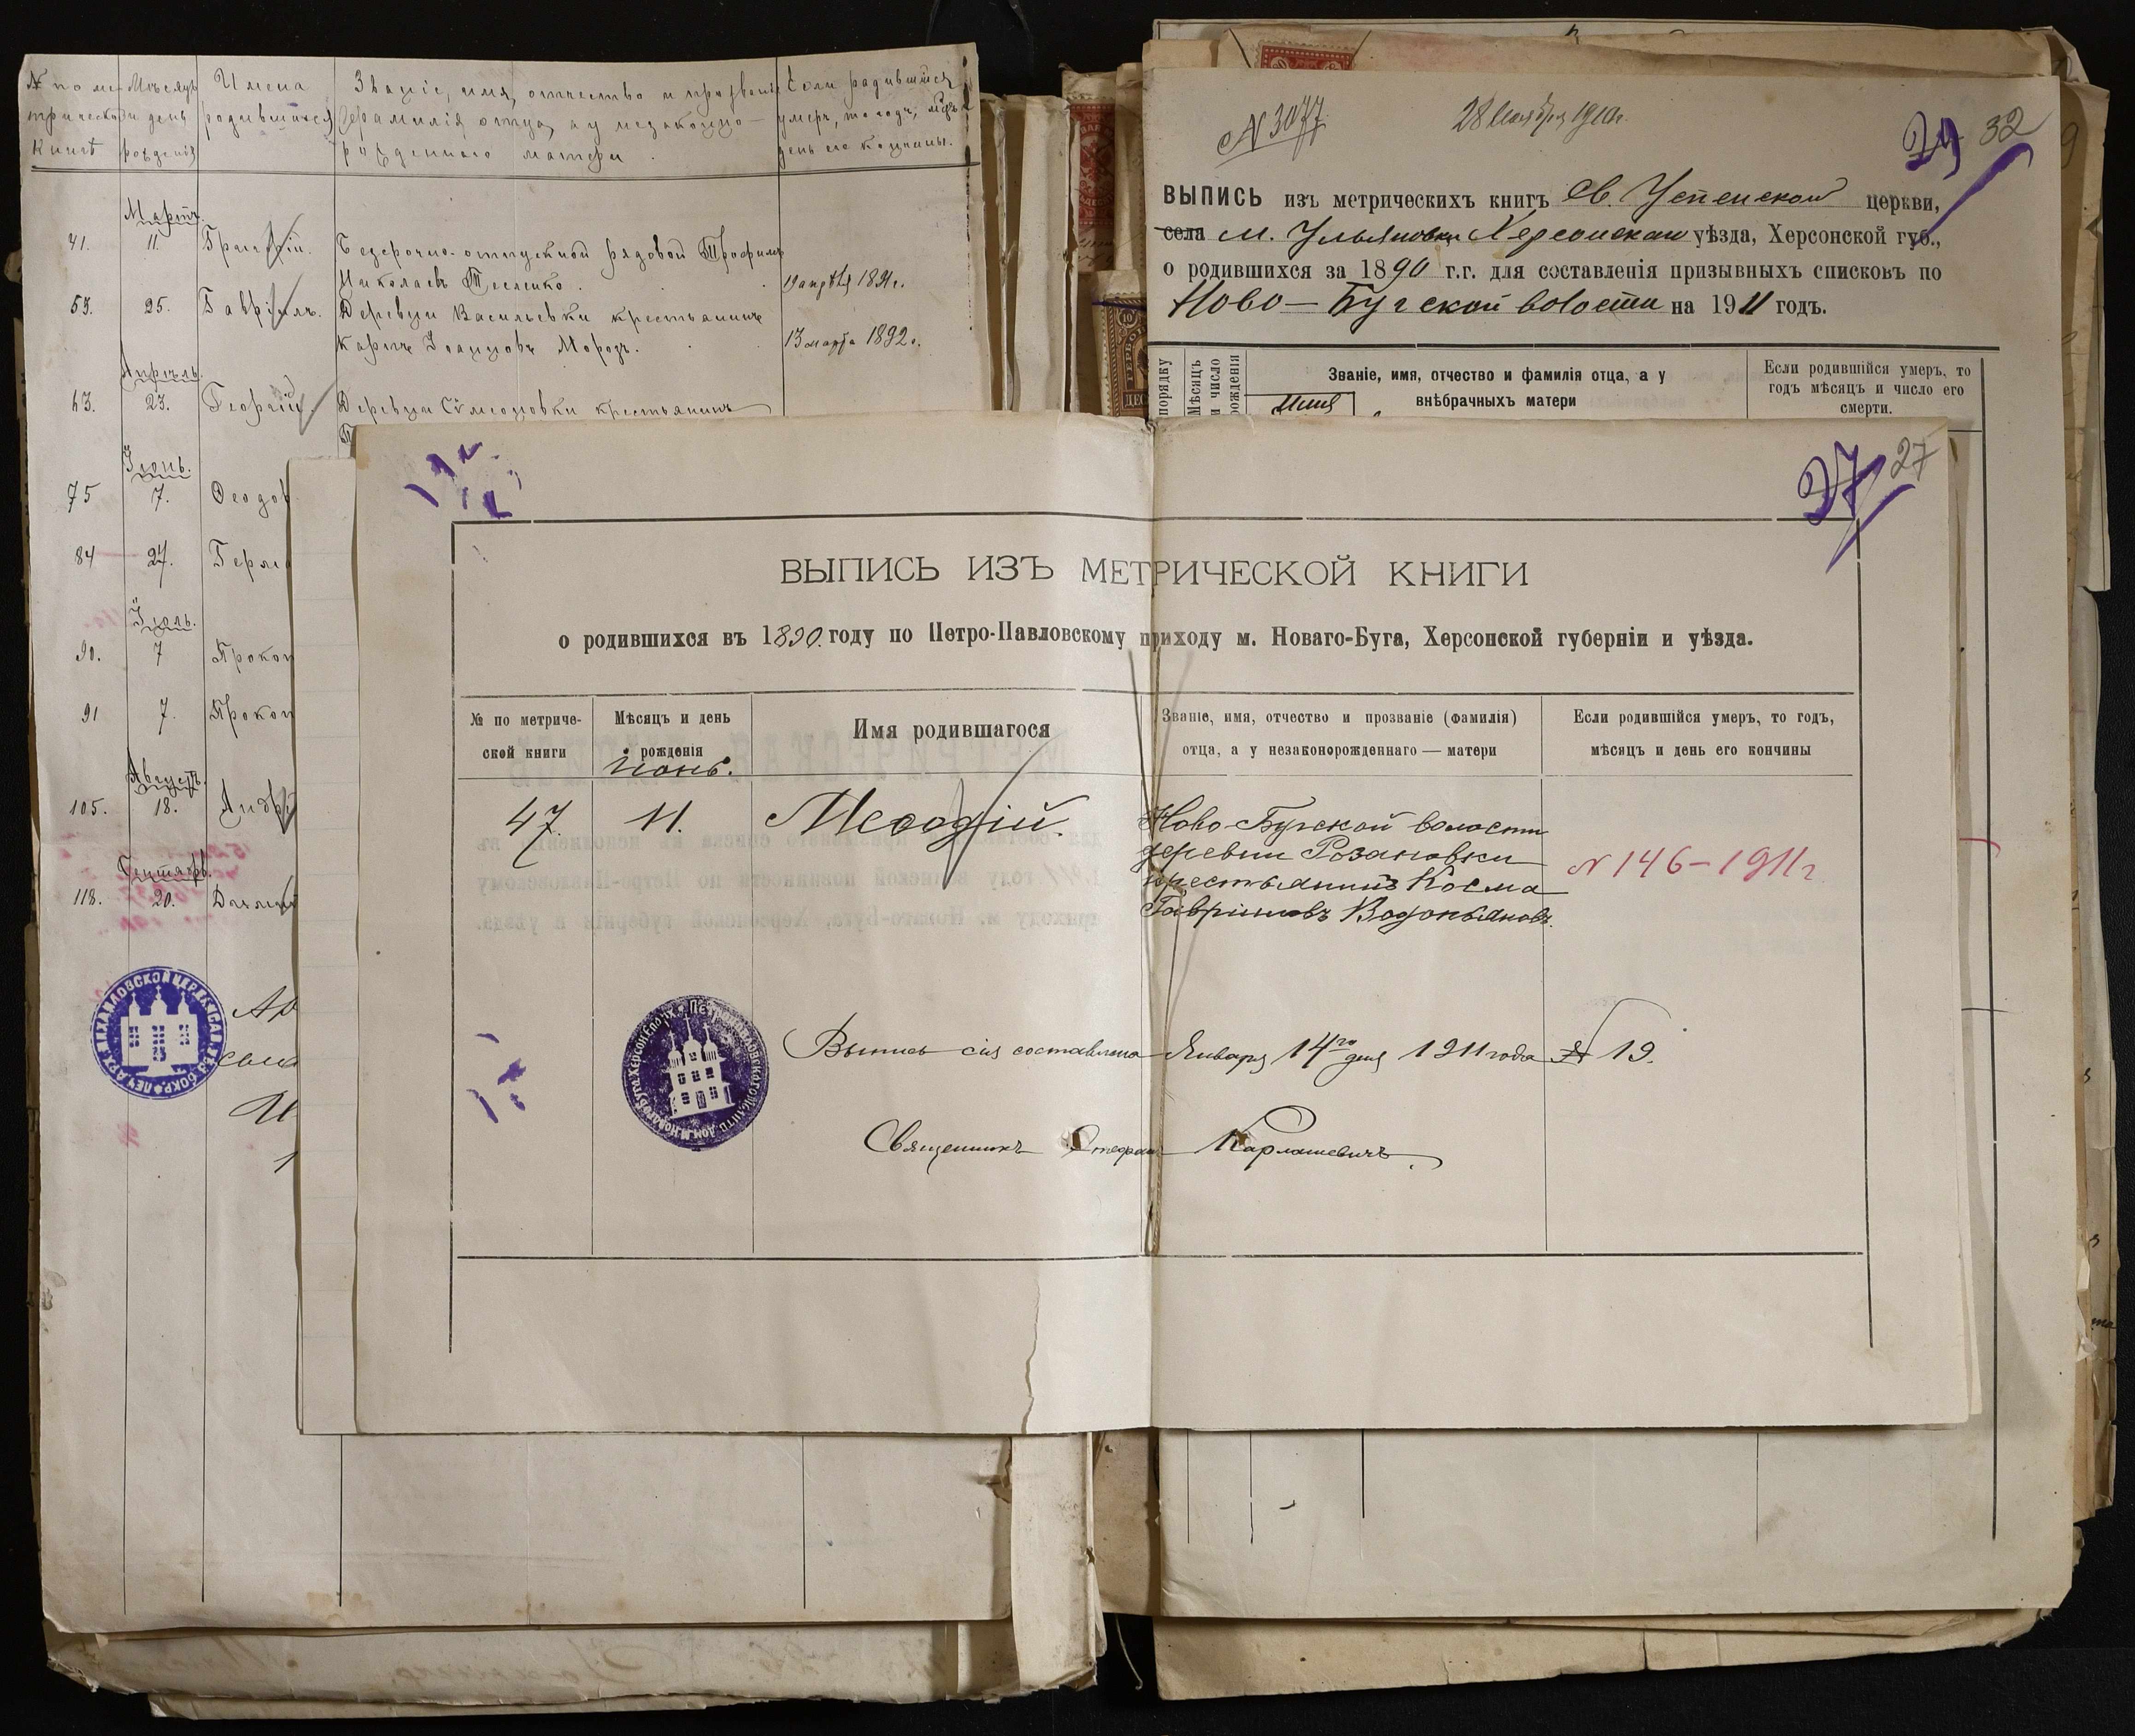 № по ме- Мѣсяцъ Имена Званіе, имя, отчество и прозваніе Если родившійся
трической и день родившихся фамилія отца, а у незаконно- умеръ, то годъ, мѣс.
книгѣ рожденія рожденнаго матери. день его кончины.
Мартъ.
41. 11. Григорій. Безсрочно-отпускной рядовой Трофимъ
Николаевъ Тесленко. 19 апрѣля 1891 г.
53. 25. Гавріилъ. Деревни Васильевки крестьянинъ
Карпъ Іоанновъ Морозъ. 13 марта 1892 г.
Апрѣль.
63. 23. Георгій. Деревни Симеоновки крестьянинъ
Іюнь.
75 7. Ѳеодо
84 27. Герма
Іюль.
90. 7 Прокоп
91 7. Прокоп
Августъ.
105. 18. Андр
Сентябрь.
118. 20.
№ 3077 28 Ноября 1910 г.
29 32
ВЫПИСЬ изъ метрическихъ книгъ Св. Успенской церкви,
села м. Ульяновки Херсонскаго уѣзда, Херсонской губ.,
о родившихся за 1890 г.г. для составленія призывныхъ списковъ по
Ново-Бугской волости на 1911 годъ.
порядку
Мѣсяцъ и число рожденія
Имя
Званіе, имя, отчество и фамилія отца, а у
внѣбрачныхъ матери
Если родившійся умеръ, то
годъ мѣсяцъ и число его
смерти.
37 27
ВЫПИСЬ ИЗЪ МЕТРИЧЕСКОЙ КНИГИ
о родившихся въ 1890. году по Петро-Павловскому приходу м. Новаго-Буга, Херсонской губерніи и уѣзда.
№ по метриче-
ской книги
Мѣсяцъ и день
рожденія
Іюнь.
Имя родившагося
Званіе, имя, отчество и прозваніе (фамилія)
отца, а у незаконорожденнаго — матери
Если родившійся умеръ, то годъ,
мѣсяцъ и день его кончины
47. 11. Меѳодій. Ново-Бугской волости
деревни Розановки
крестьянинъ Косма
Гавріиловъ Водопьяновъ.
№ 146-1911 г
Выпись сія составлена Января 14го дня 1911 года № 19.
Священникъ Стефанъ Карлашевичъ.